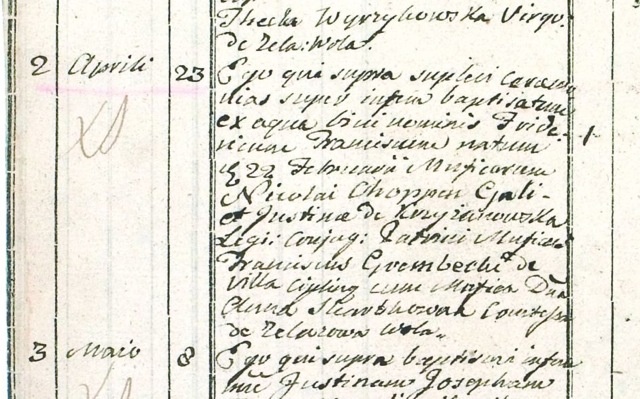 Thecla Wyrzykowska Virgo.
de Zela: Wola.
2 Aprili 23 Ego qui supra suplevi caeremo
nias super infan baptisatum
ex aqua bini nominis Fride-
ricum Franciscum natum 1
22 Februarii Musicorum
Nicolai Choppen Gali-
et Justinæ de Krzyżanowska
Legi: Conjug: Patrini Musi
Franciscus Grembecki de
Villa Cipliny cum Mgfica Dna
Anna Skarbkowna Comtessa
de Zelazowa Wola.
3 Maio 8 Ego qui supra baptisavi infan
Justinam Josepham